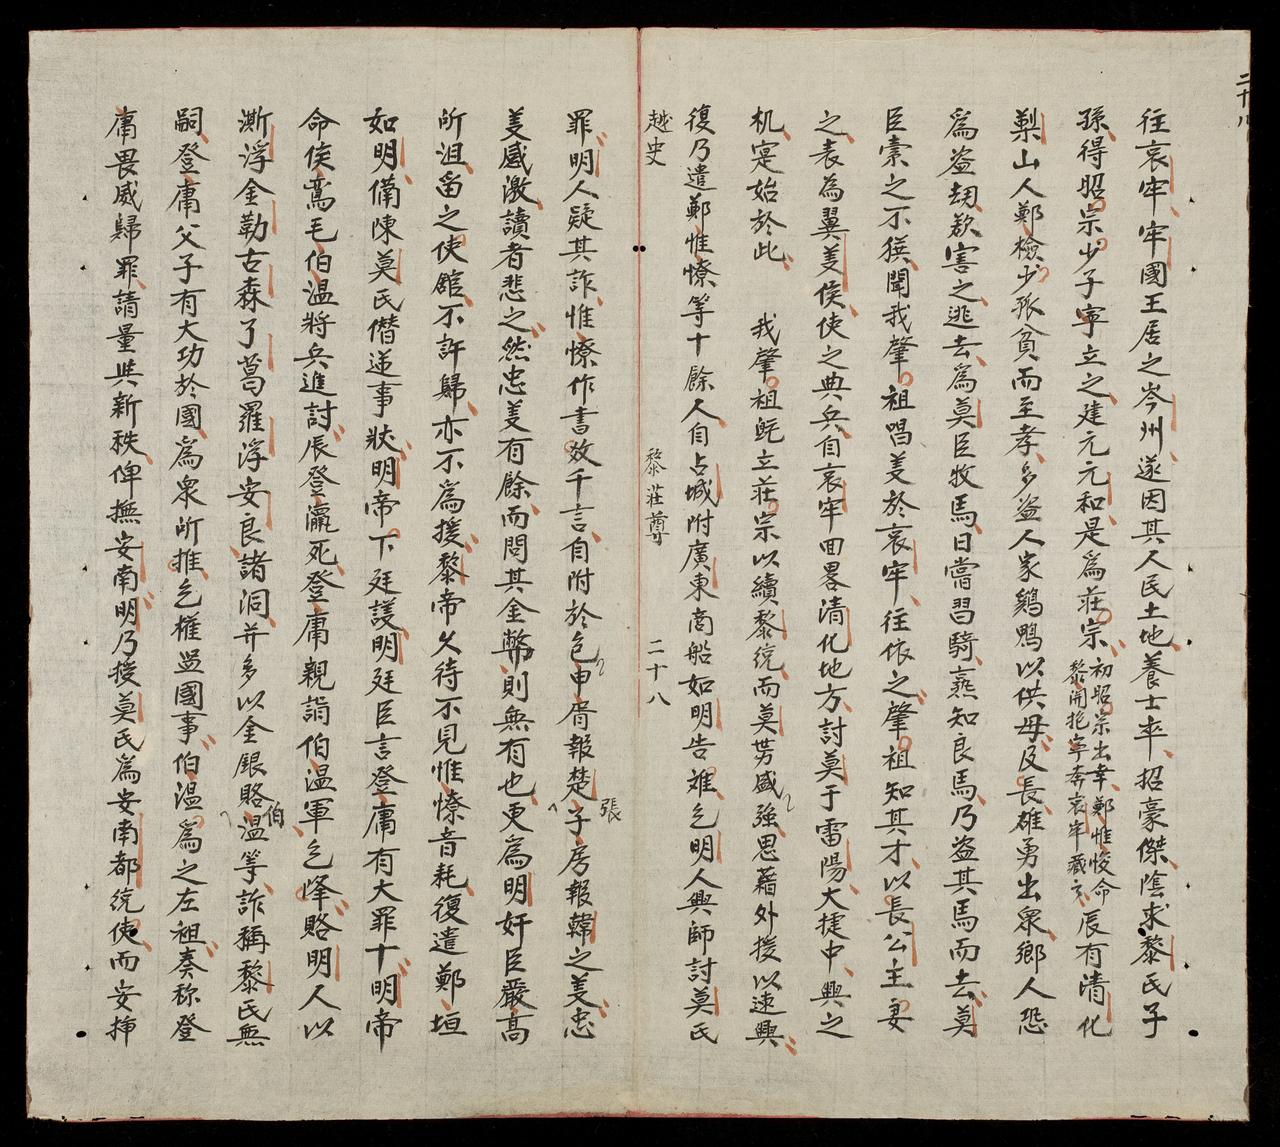 二十八
往哀牢牢國王居之岑州遂因其人民土地養士卒招豪傑陰求黎氏子
孫得昭宗少子寧立之建元元和是為莊宗初昭宗出幸鄭惟悛命
黎開抱寧奔哀牢藏之辰有清化
梨山人鄭檢少孤貧而至孝多盗人家鷄鴨以供母及長雄勇出衆鄉人恐
為盗刼欲害之逃去為莫臣牧馬日嘗習騎熟知良馬乃盗其馬而去莫
臣索之不獲聞我肇祖唱義於哀牢往依之肇祖知其才以長公主妻
之表為翼義侯使之典兵自哀牢回畧清化地方討莫于雷陽大捷中興之
机寔始於此 我肇祖既立莊宗以續黎統而莫势盛強思藉外援以速興
復乃遣鄭惟憭等十餘人自占城附廣東商船如明告难乞明人興師討莫氏
越史 黎莊尊 二十八
罪明人疑其詐惟憭作書效千言自附於包申胥報楚張子房報韓之義忠
義感激讀者悲之然忠義有餘而問其金幣則無有也更為明奸臣嚴高
所沮畄之使舘不許歸亦不為援黎帝久待不見惟憭音耗復遣鄭垣
如明備陳莫氏僭逆事狀明帝下廷議明廷臣言登庸有大罪十明帝
命侯鸞毛伯温將兵進討辰登瀛死登庸親詣伯温軍乞降賂明人以
澌浮金勒古森了葛羅浮安良諸洞并多以金銀賂伯温等詐稱黎氏無
嗣登庸父子有大功於國為衆所推乞權监國事伯温為之左袒奏称登
庸畏威歸罪請量與新秩俾撫安南明乃授莫氏為安南都統使而安插